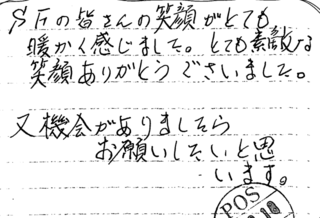 S Fの皆さんの笑顔がとても
暖かく感じました。とても素敵な
笑顔ありがとうございました。
又機会がありましたら
お願いしたいと思
います。
POS